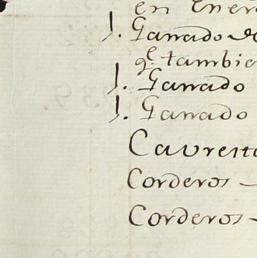 en Enero
). Ganado de
qe. tambie
). Ganado
). Ganado
Caureto
Corderos -
Corderos -